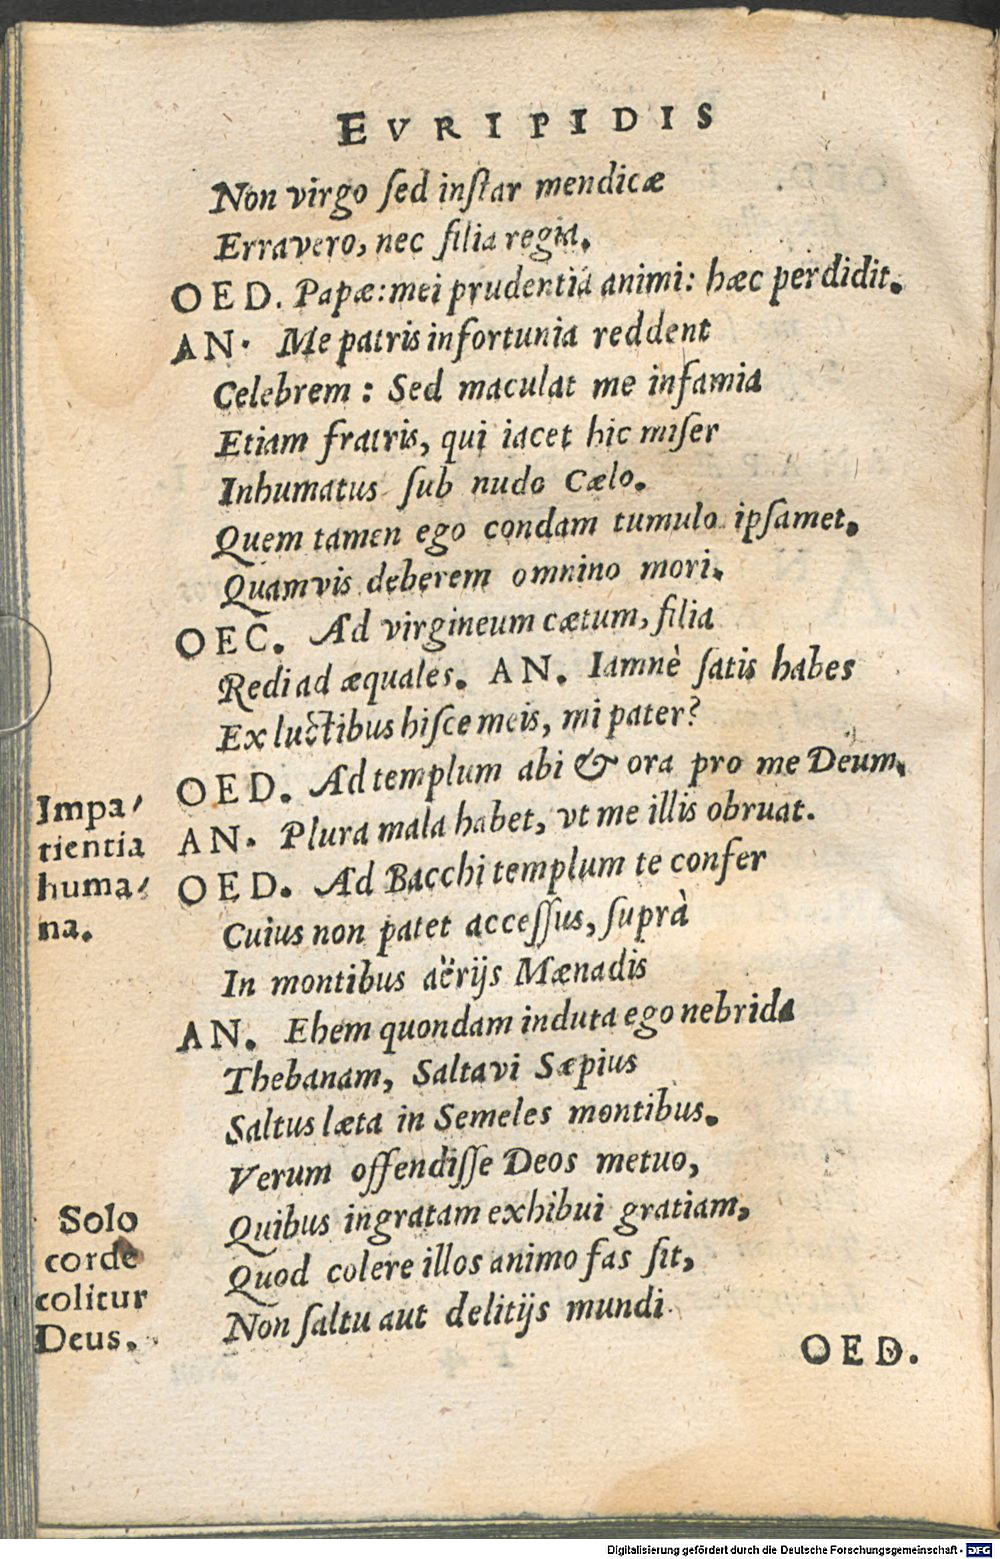 EVRIPIDIS
Non virgo ſed inſtar mendicæ
Erravero, nec filia regia.
OED. Papæ: mei prudentia animi: hæc perdidit.
AN. Me patris infortunia reddent
Celebrem: Sed maculat me infamia
Etiam fratris, qui iacet hic miſer
Inhumatus ſub nudo Cælo.
Quem tamen ego condam tumulo ipſamet.
Quamvis deberem omnino mori.
OEC. Ad virgineum cætum, filia
Redi ad æquales. AN. Iamnè ſatis habes
Ex luctibus hiſce meis, mi pater?
OED. Ad templum abi & ora pro me Deum.
AN. Plura mala habet, vt me illis obruat.
OED. Ad Bacchi templum te confer
Cuius non patet acceſſus, ſuprà
In montibus aërijs Mænadis
AN. Ehem quondam induta ego nebrida
Thebanam, Saltavi Sæpius
Saltus læta in Semeles montibus.
Verum offendiſſe Deos metuo,
Quibus ingratam exhibui gratiam,
Quod colere illos animo fas ſit,
Non ſaltu aut delitijs mundi
OED.
Impa-
tientia
huma-
na.
Solo
corde
colitur
Deus.
Digitalisierung gefördert durch die Deutsche Forschungsgemeinschaft - DFG